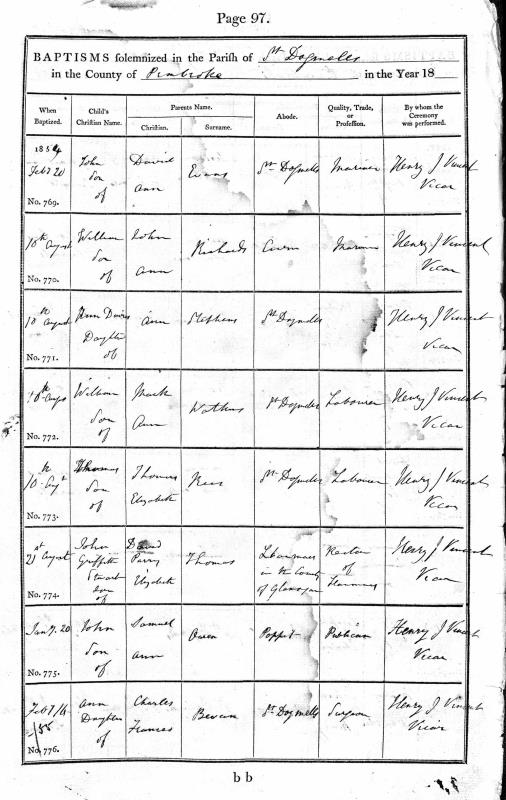 Page 97.
BAPTISMS solemnized in the Parish of St Dogmells
in the County of Pembroke in the Year 18
When Baptized. Child's Christian Name. Parents Name. Christian. Surname. Abode. Quality, Trade, or Profession. By whom the Ceremony was performed.
1854
Feb 20 John Son of David Ann Evans St Dogmells Mariner Henry J Vincent Vicar
No. 769.
10th August William Son of John Ann Richards Mariner Henry J Vincent Vicar
No. 770.
10th August Ann Davies Daughter of Ann Stephens St Dogmells Henry J Vincent Vicar
No. 771.
10th William Son of Mark Ann Watkins St Dogmells Labourer Henry J Vincent Vicar
No. 772.
10th Augt Thomas Son of Thomas Elizabeth Rees St Dogmells Labourer Henry J Vincent Vicar
No. 773.
21st August John Griffith Stewart Son of David Parry Elizabeth Thomas in the County of Glamorgan Rector of Henry J Vincent Vicar
No. 774.
Jany. 20 John Son of Samuel Ann Owen Poppit Publican Henry J Vincent Vicar
No. 775.
/55 Ann Daughter of Charles Frances Bevan St Dogmells Surgeon Henry J Vincent Vicar
No. 776.
b b